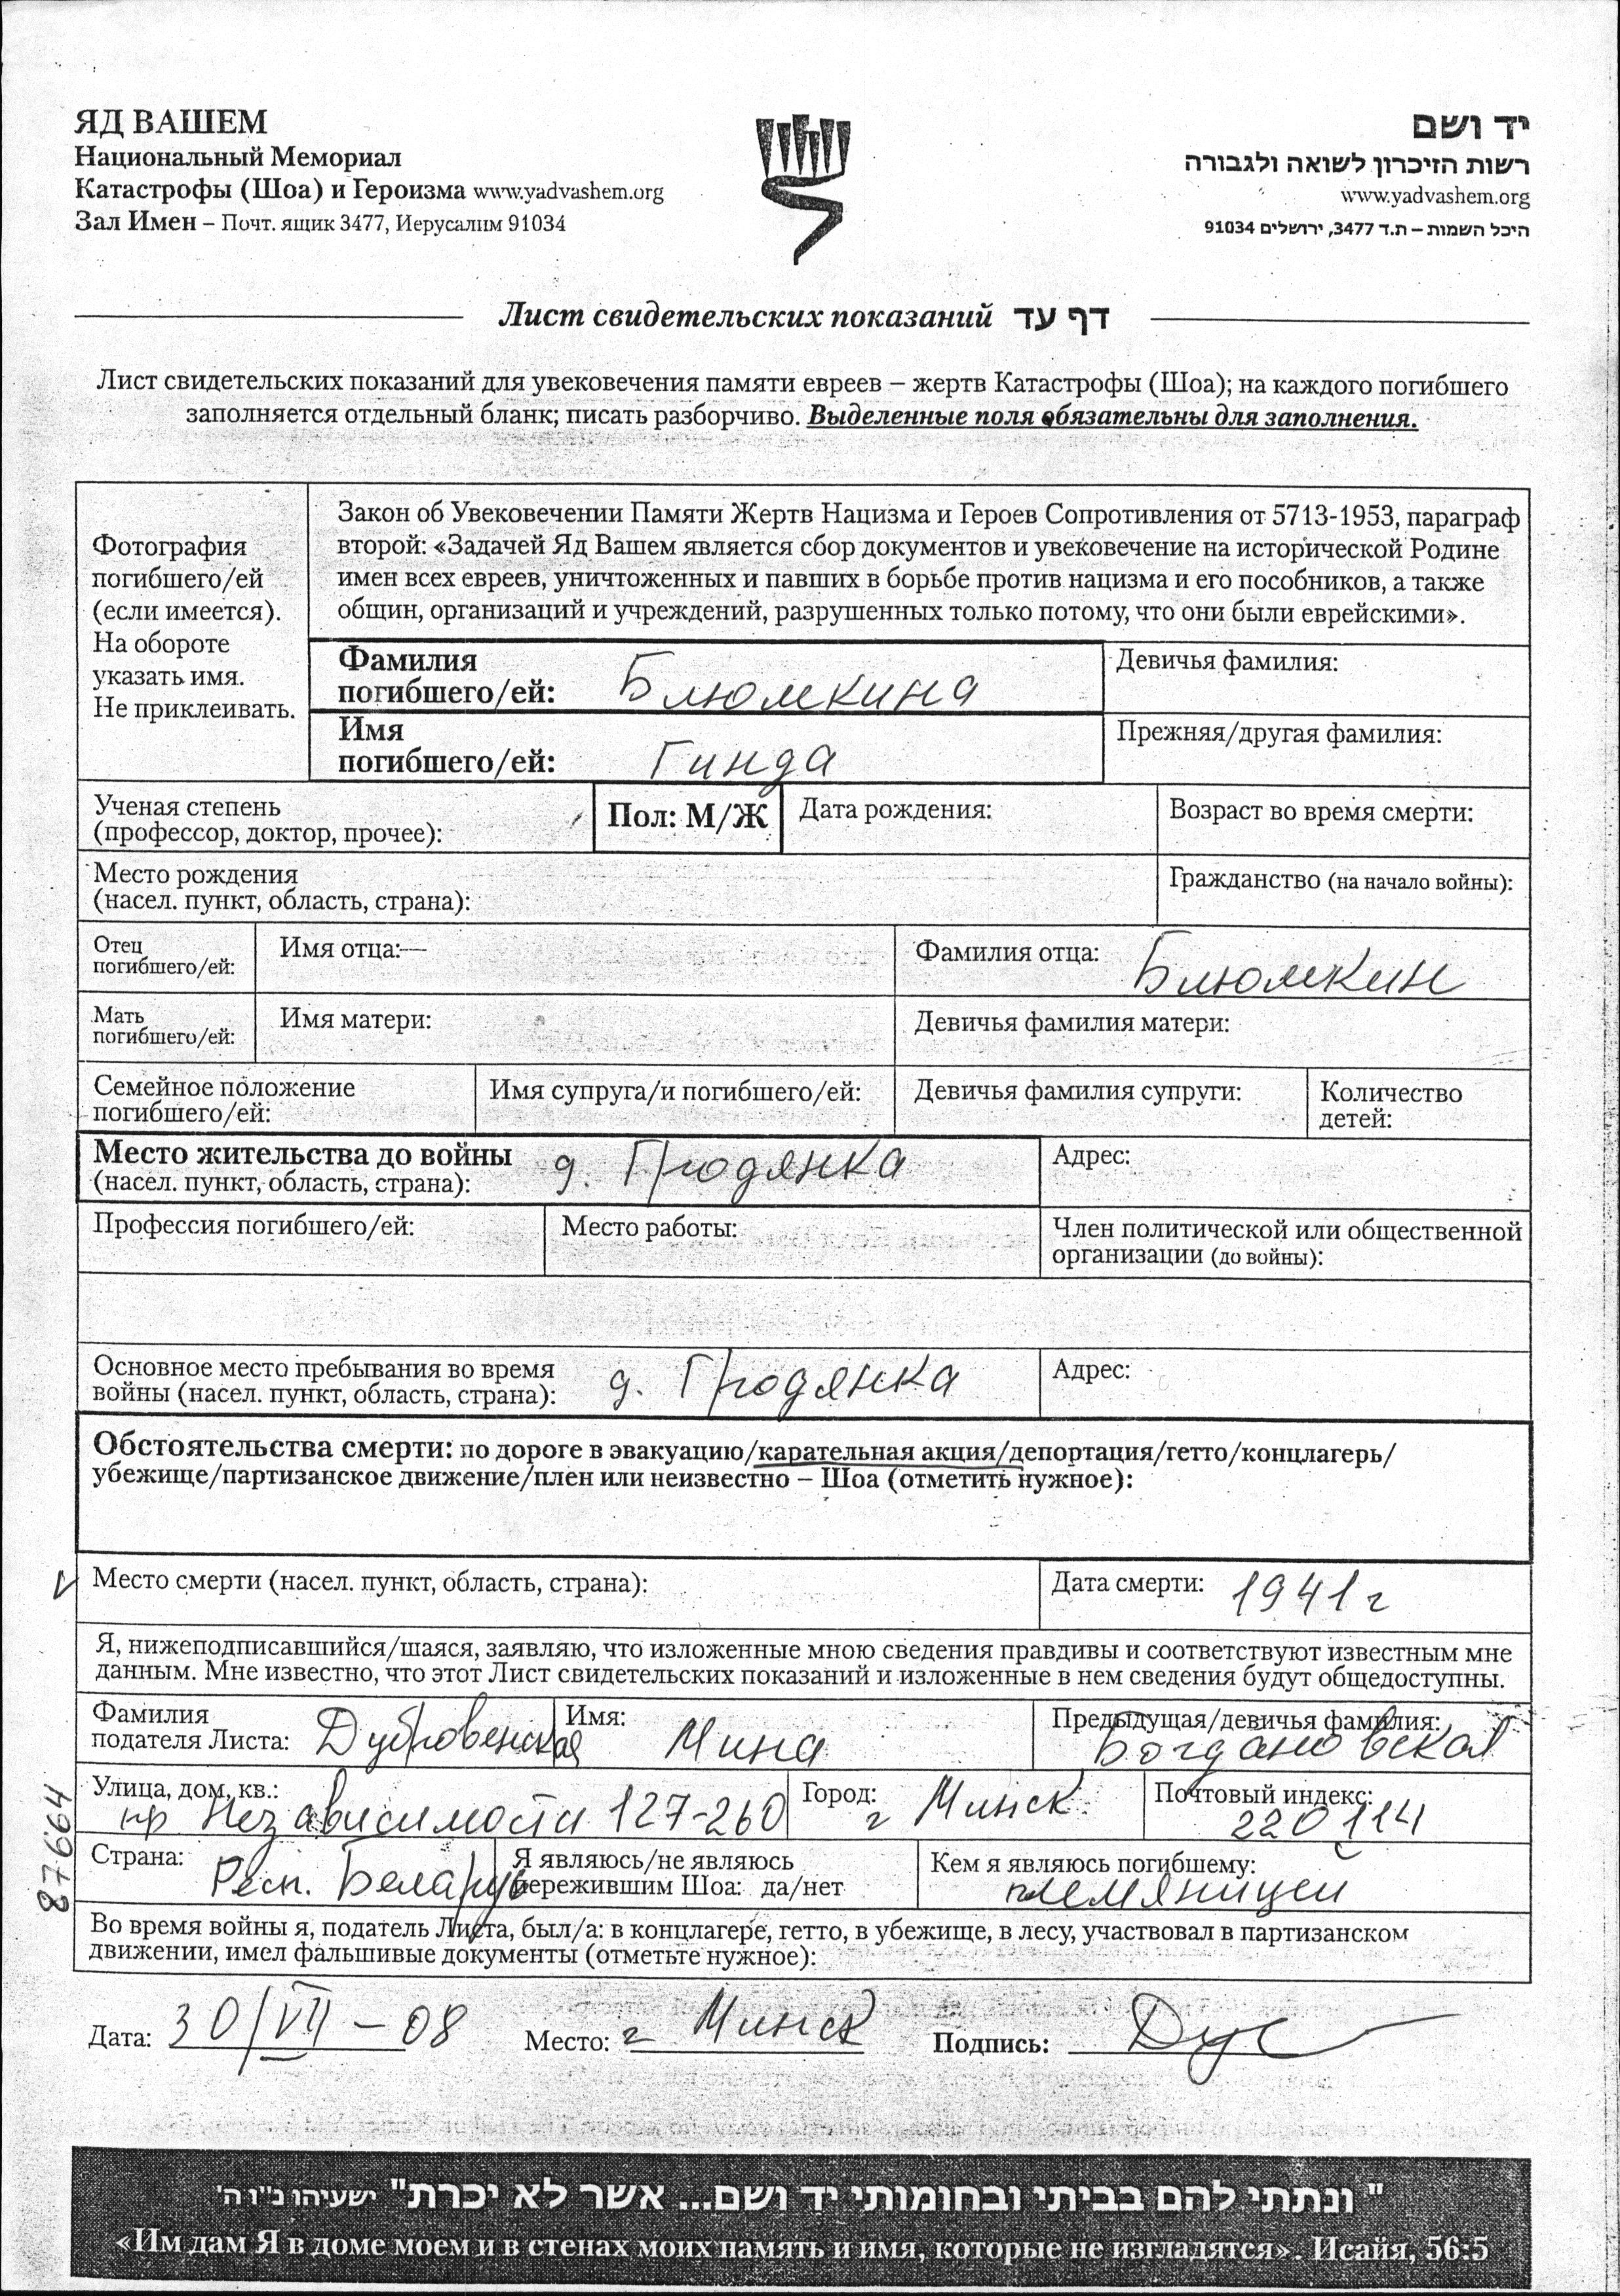 ЯД ВАШЕМ
Национальный Мемориал
Катастрофы (Шоа) и Героизма www.yadvashem.org
Зал Имен – Почт. ящик 3477, Иерусалим 91034
יד ושם
רשות הזיכרון לשואה ולגבורה
www.yadvashem.org
היכל השמות – ת.ד 3477, ירושלים 91034
Лист свидетельских показаний דף עד
Лист свидетельских показаний для увековечения памяти евреев – жертв Катастрофы (Шоа); на каждого погибшего
заполняется отдельный бланк; писать разборчиво. Выделенные поля обязательны для заполнения.
Фотография
погибшего/ей
(если имеется).
На обороте
указать имя.
Не приклеивать.
Закон об Увековечении Памяти Жертв Нацизма и Героев Сопротивления от 5713-1953, параграф
второй: «Задачей Яд Вашем является сбор документов и увековечение на исторической Родине
имен всех евреев, уничтоженных и павших в борьбе против нацизма и его пособников, а также
общин, организаций и учреждений, разрушенных только потому, что они были еврейскими».
Фамилия
погибшего/ей: Блюмкина
Девичья фамилия:
Имя
погибшего/ей: Гинда
Прежняя/другая фамилия:
Ученая степень
(профессор, доктор, прочее):
Пол: М/Ж
Дата рождения:
Возраст во время смерти:
Место рождения
(насел. пункт, область, страна):
Гражданство (на начало войны):
Отец
погибшего/ей:
Имя отца:—
Фамилия отца: Блюмкин
Мать
погибшего/ей:
Имя матери:
Девичья фамилия матери:
Семейное положение
погибшего/ей:
Имя супруга/и погибшего/ей:
Девичья фамилия супруги:
Количество
детей:
Место жительства до войны
(насел. пункт, область, страна): д. Гродянка
Адрес:
Профессия погибшего/ей:
Место работы:
Член политической или общественной
организации (до войны):
Основное место пребывания во время
войны (насел. пункт, область, страна): д. Гродянка
Адрес:
Обстоятельства смерти: по дороге в эвакуацию/карательная акция/депортация/гетто/концлагерь/
убежище/партизанское движение/плен или неизвестно – Шоа (отметить нужное):
V Место смерти (насел. пункт, область, страна):
Дата смерти: 1941 г
Я, нижеподписавшийся/шаяся, заявляю, что изложенные мною сведения правдивы и соответствуют известным мне
данным. Мне известно, что этот Лист свидетельских показаний и изложенные в нем сведения будут общедоступны.
Фамилия
подателя Листа: Дубровенская
Имя: Мина
Предыдущая/девичья фамилия:
Богдановская
Улица, дом, кв.:
пр Независимости 127-260
Город: г Минск
Почтовый индекс:
220114
Страна:
Респ. Беларусь
Я являюсь/не являюсь
пережившим Шоа: да/нет
Кем я являюсь погибшему:
племяницей
Во время войны я, податель Листа, был/а: в концлагере, гетто, в убежище, в лесу, участвовал в партизанском
движении, имел фальшивые документы (отметьте нужное):
87664
Дата: 30/VII – 08 Место: г Минск Подпись: Дус
" ונתתי להם בביתי ובחומותי יד ושם... אשר לא יכרת" ישעיהו נ"ו ה'
«Им дам Я в доме моем и в стенах моих память и имя, которые не изгладятся». Исайя, 56:5